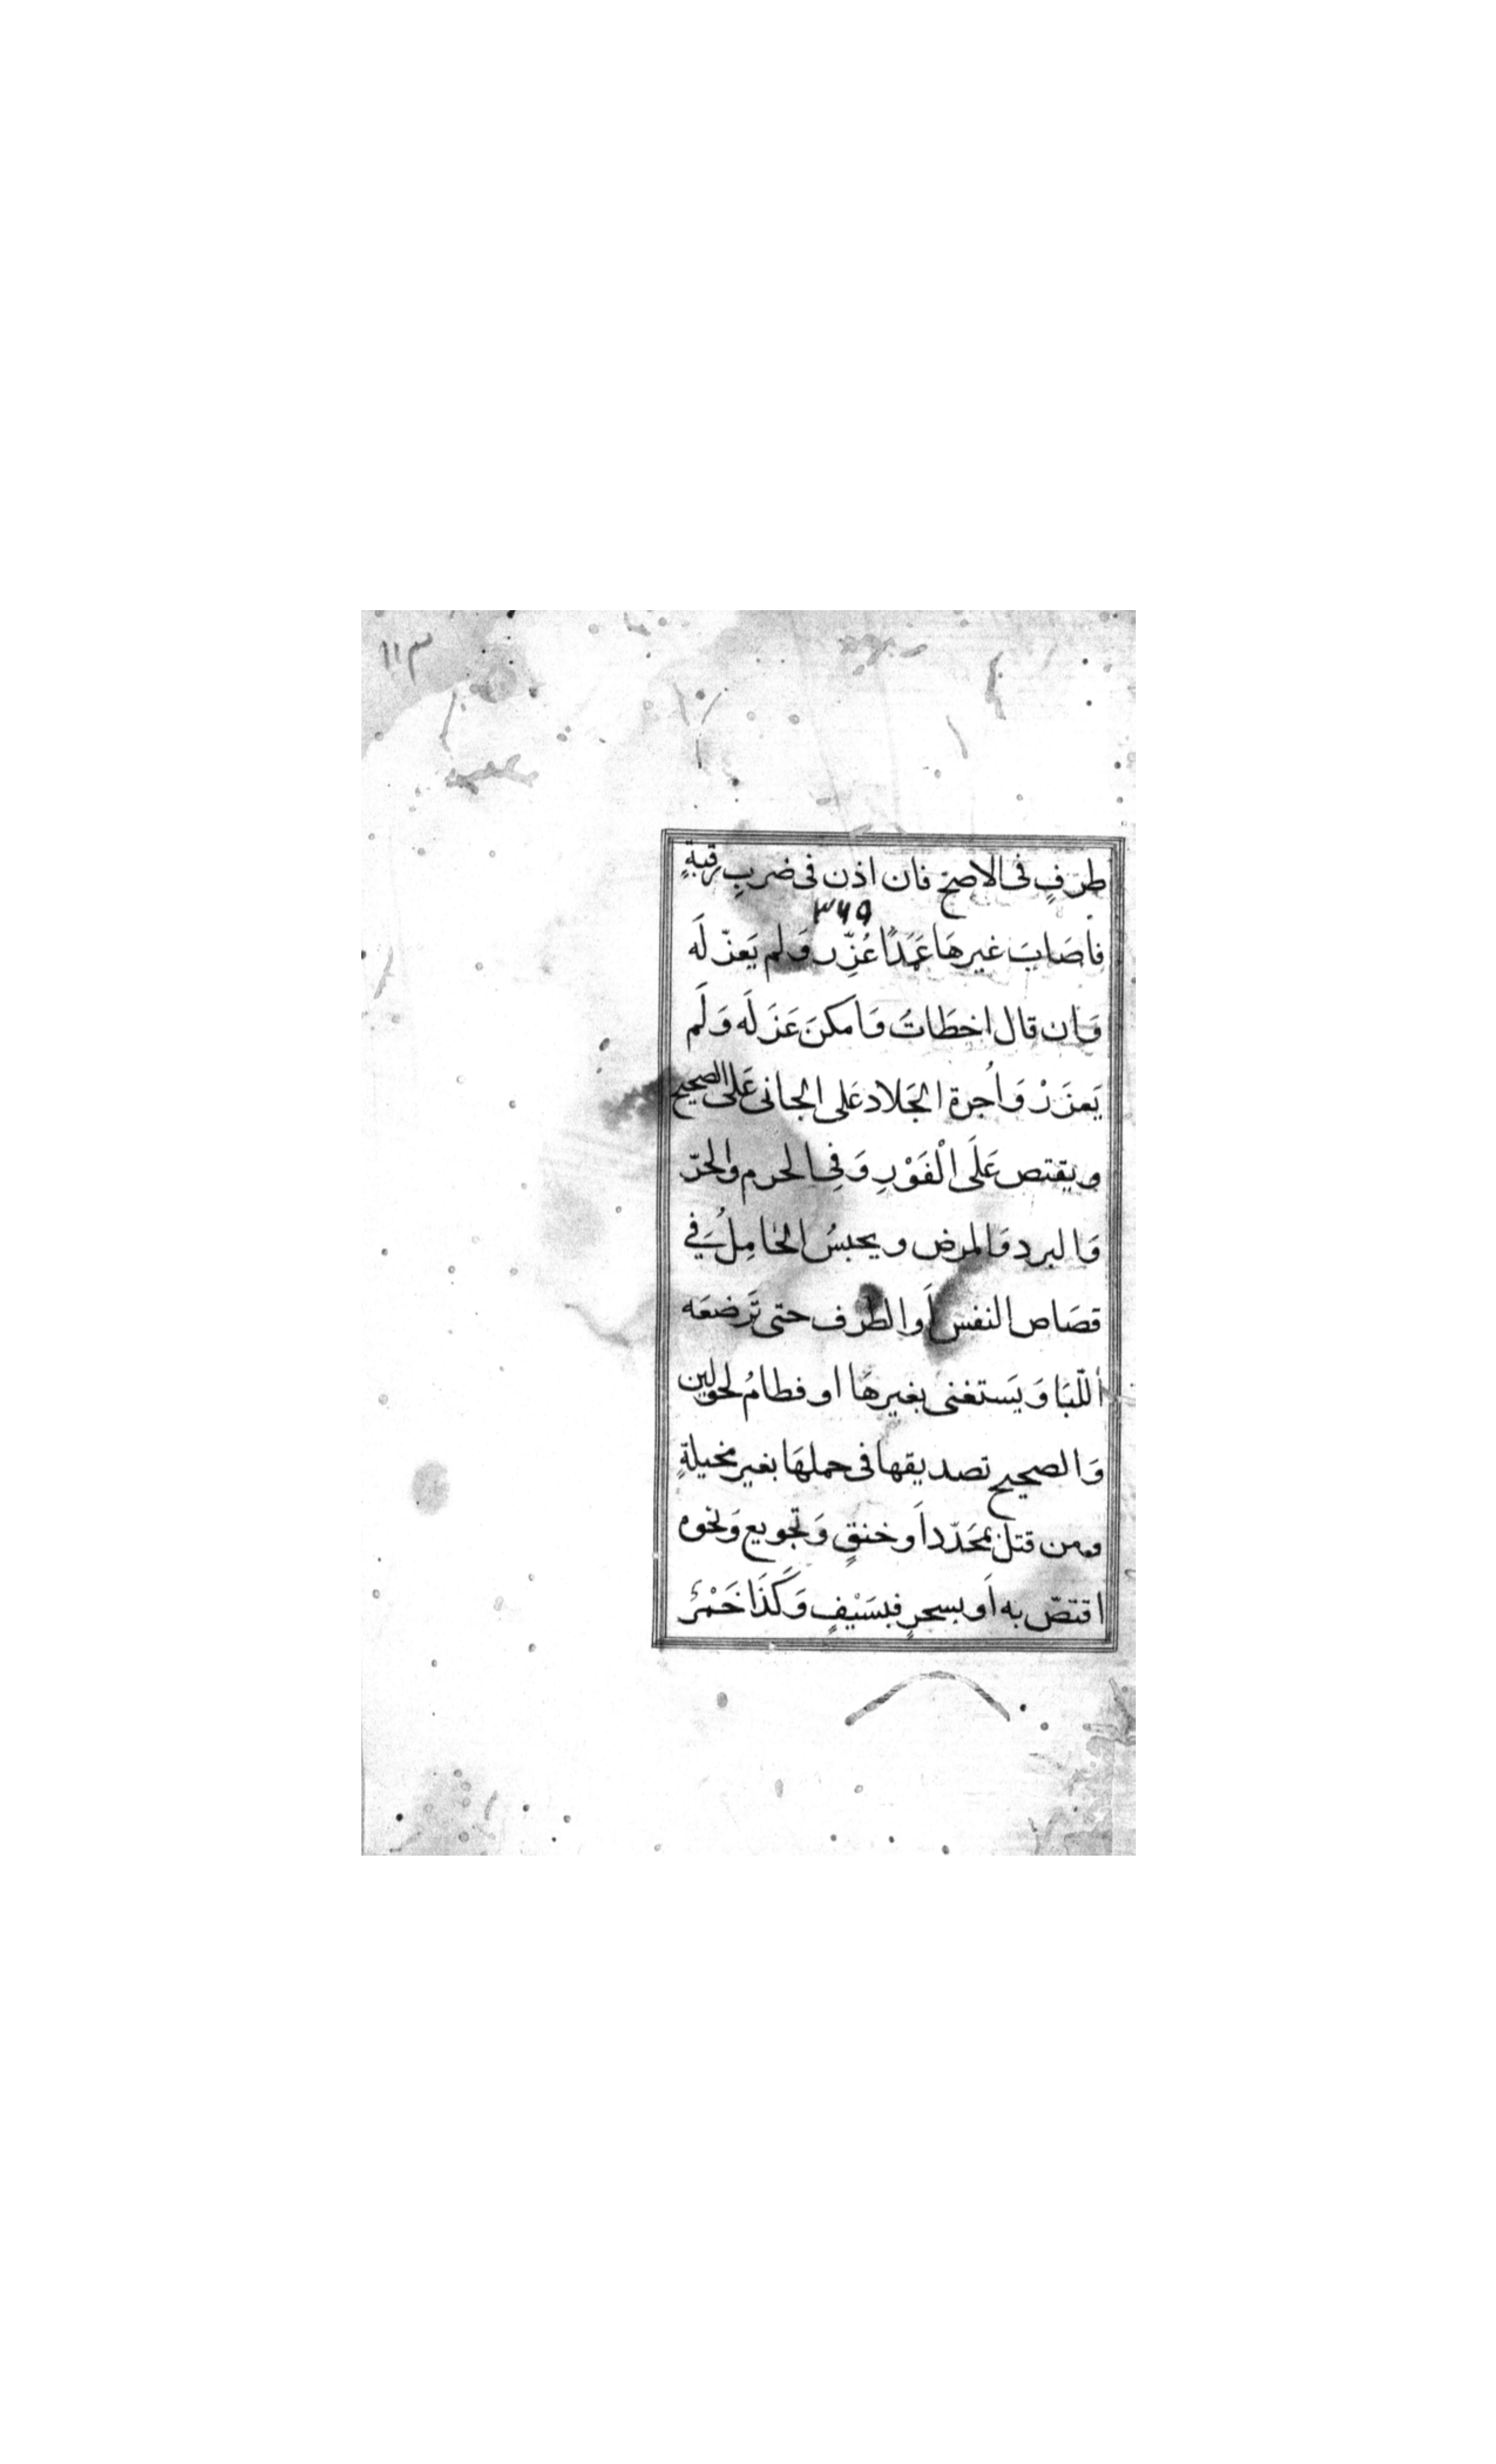 ١١٣
طرَفٍ فى الاصحّ فان اذن فى ضربِ رقبةٍ
٣٦٩
فاصَابَ غيرهَا عَمَدًا عُزِّر وَلم يَعزّ لَه
وَان قال اخطَاتُ وَاَمكنَ عَزَ لَه وَلَم
يَعزَرْ وَاُجرة الجَلاد عَلى الجانى عَلى الصحيح
ويقتص عَلَى الْفَوْرِ وَفِى الحرم والحرّ
وَالبرد وَالمرض ويحبسُ الحَامِلُ فِي
قصَاص النفس اَو الطرف حتى تَرضعَه
اُللّبَا وَيَستغنى بغيرهَا او فطامُ لحولين
وَالصحيح تصديقها فى حملهَا بغير مخيلةٍ
ومن قتل بمحَدّد اَو خنقٍ وَتجويع وَنحوه
اقتصّ به اَو بسحرٍ فبسَيْفٍ وَكَذَا خَمْرٌ